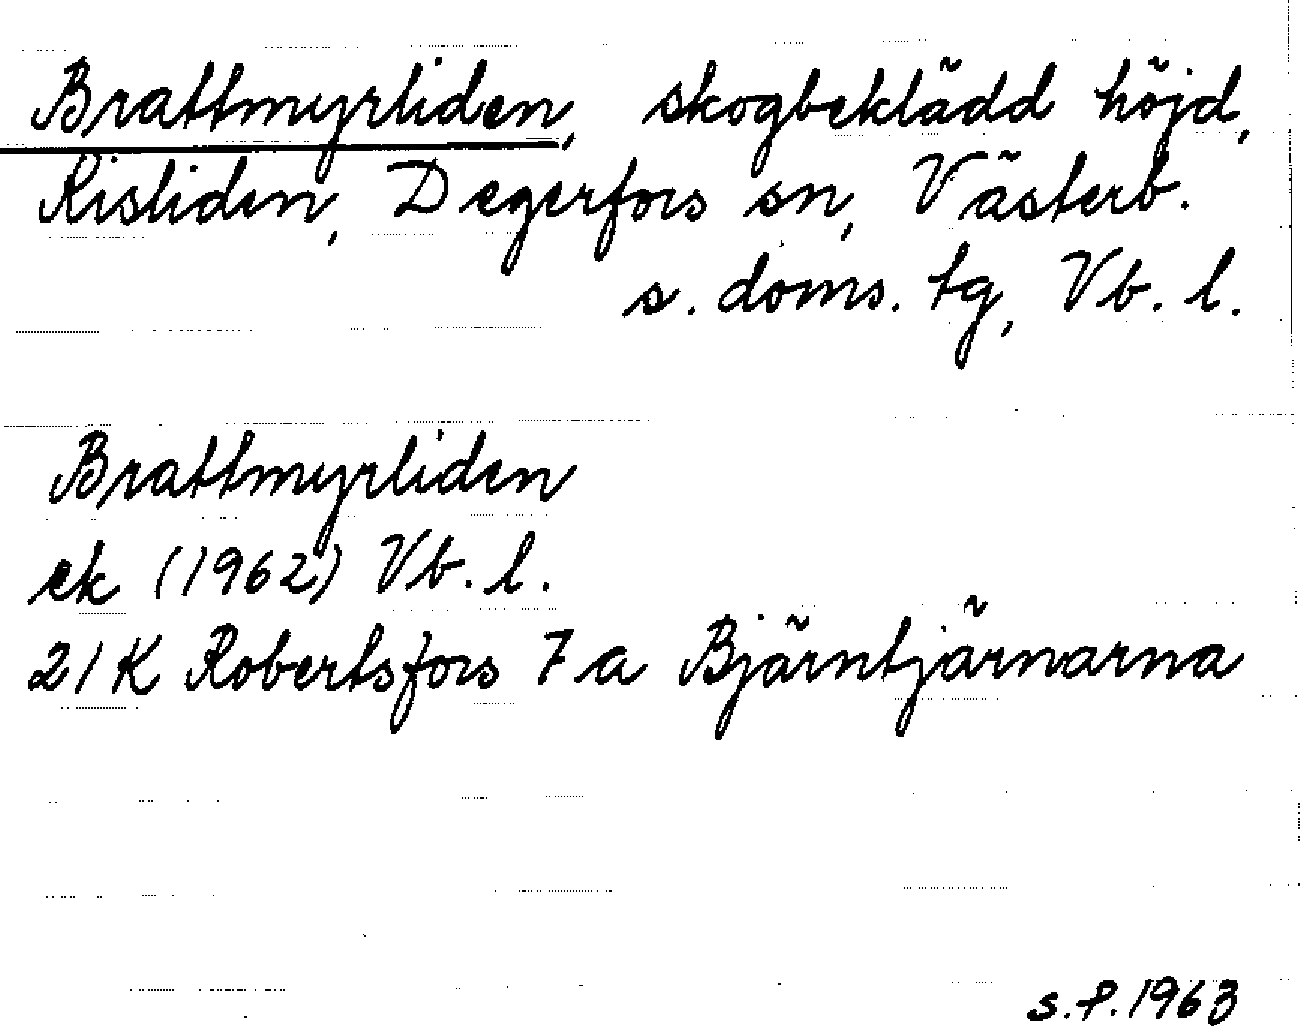 Brattmyrliden, skogbeklädd höjd,
Risliden, Degerfors sn, Västerb.
s. doms. tg, Vb. l.
Brattmyrliden
ek (1962) Vb. l.
21K Robertsfors 7a Bjärntjärnarna
s.P.1963